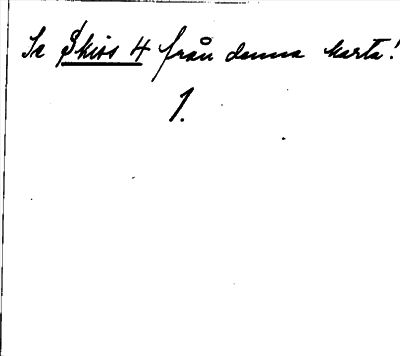 Se Skiss 4 från denna karta!
1.